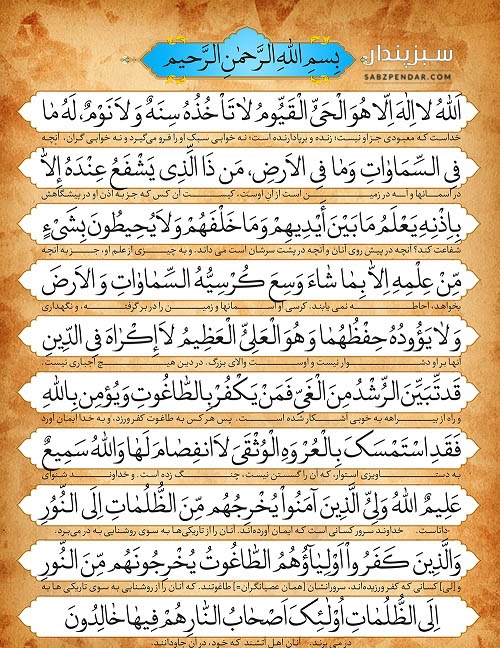 سبزپندار
SABZPENDAR.COM
بِسْمِ اللهِ الرَّحْمٰنِ الرَّحیمِ
اللهُ لاَ إِلَهَ إِلاَّ هُوَ الْحَیُّ الْقَیُّومُ لاَ تَأْخُذُهُ سِنَةٌ وَلاَ نَوْمٌ، لَهُ مَا
خداست که معبودی جز او نیست؛ زنده و برپادارنده است؛ نه خوابی سبک او را فرو می‌گیرد و نه خوابی گران، آنچه
فِی السَّمَاوَاتِ وَمَا فِی الأَرضِ، مَن ذَا الَّذِی یَشْفَعُ عِنْدَهُ إِلاَّ
در آسمانها و آنچه در زمین است از آن اوست، کیست آن کس که جز به اذن او در پیشگاهش
بِإِذْنِهِ یَعْلَمُ مَا بَیْنَ أَیْدِیهِمْ وَمَا خَلْفَهُمْ وَلاَ یُحِیطُونَ بِشَیْءٍ
شفاعت کند؟ آنچه در پیش روی آنان و آنچه در پشت سرشان است می داند. و به چیزی از علم او، جز به آنچه
مِّنْ عِلْمِهِ إِلاَّ بِمَا شَاءَ وَسِعَ کُرْسِیُّهُ السَّمَاوَاتِ وَالأَرْضَ
بخواهد، احاطه نمی یابند. کرسی او آسمانها و زمین را در بر گرفته، و نگهداری
وَلاَ یَؤُودُهُ حِفْظُهُمَا وَهُوَ الْعَلِیُّ الْعَظِیمُ لاَ إِکْرَاهَ فِی الدِّینِ
آنها بر او دشوار نیست و اوست والای بزرگ. در دین هیچ اجباری نیست.
قَد تَّبَیَّنَ الرُّشْدُ مِنَ الْغَیِّ فَمَنْ یَکْفُرْ بِالطَّاغُوتِ وَیُؤْمِن بِاللهِ
و راه از بیراهه به خوبی آشکار شده است. پس هر کس به طاغوت کفر ورزد، و به خدا ایمان آورد
فَقَدِ اسْتَمْسَکَ بِالْعُرْوَةِ الْوُثْقَیَ لاَ انفِصَامَ لَهَا وَاللهُ سَمِیعٌ
به دستاویزی استوار، که آن را گسستن نیست، چنگ زده است. و خداوند شنوای
عَلِیمٌ اللهُ وَلِیُّ الَّذِینَ آمَنُواْ یُخْرِجُهُم مِّنَ الظُّلُمَاتِ إِلَی النُّوُرِ
داناست. خداوند سرور کسانی است که ایمان آورده‌اند. آنان را از تاریکی ها به سوی روشنایی به در می‌برد.
وَالَّذِینَ کَفَرُواْ أَوْلِیَآؤُهُمُ الطَّاغُوتُ یُخْرِجُونَهُم مِّنَ النُّورِ
و[لی] کسانی که کفر ورزیده‌اند، سرورانشان [همان عصیانگران=] طاغوتند. که آنان را از روشنایی به سوی تاریکی ها به
إِلَی الظُّلُمَاتِ أُوْلَئِکَ أَصْحَابُ النَّارِ هُمْ فِیهَا خَالِدُونَ
در می برند. آنان اهل آتشند که خود، در آن جاودانند.